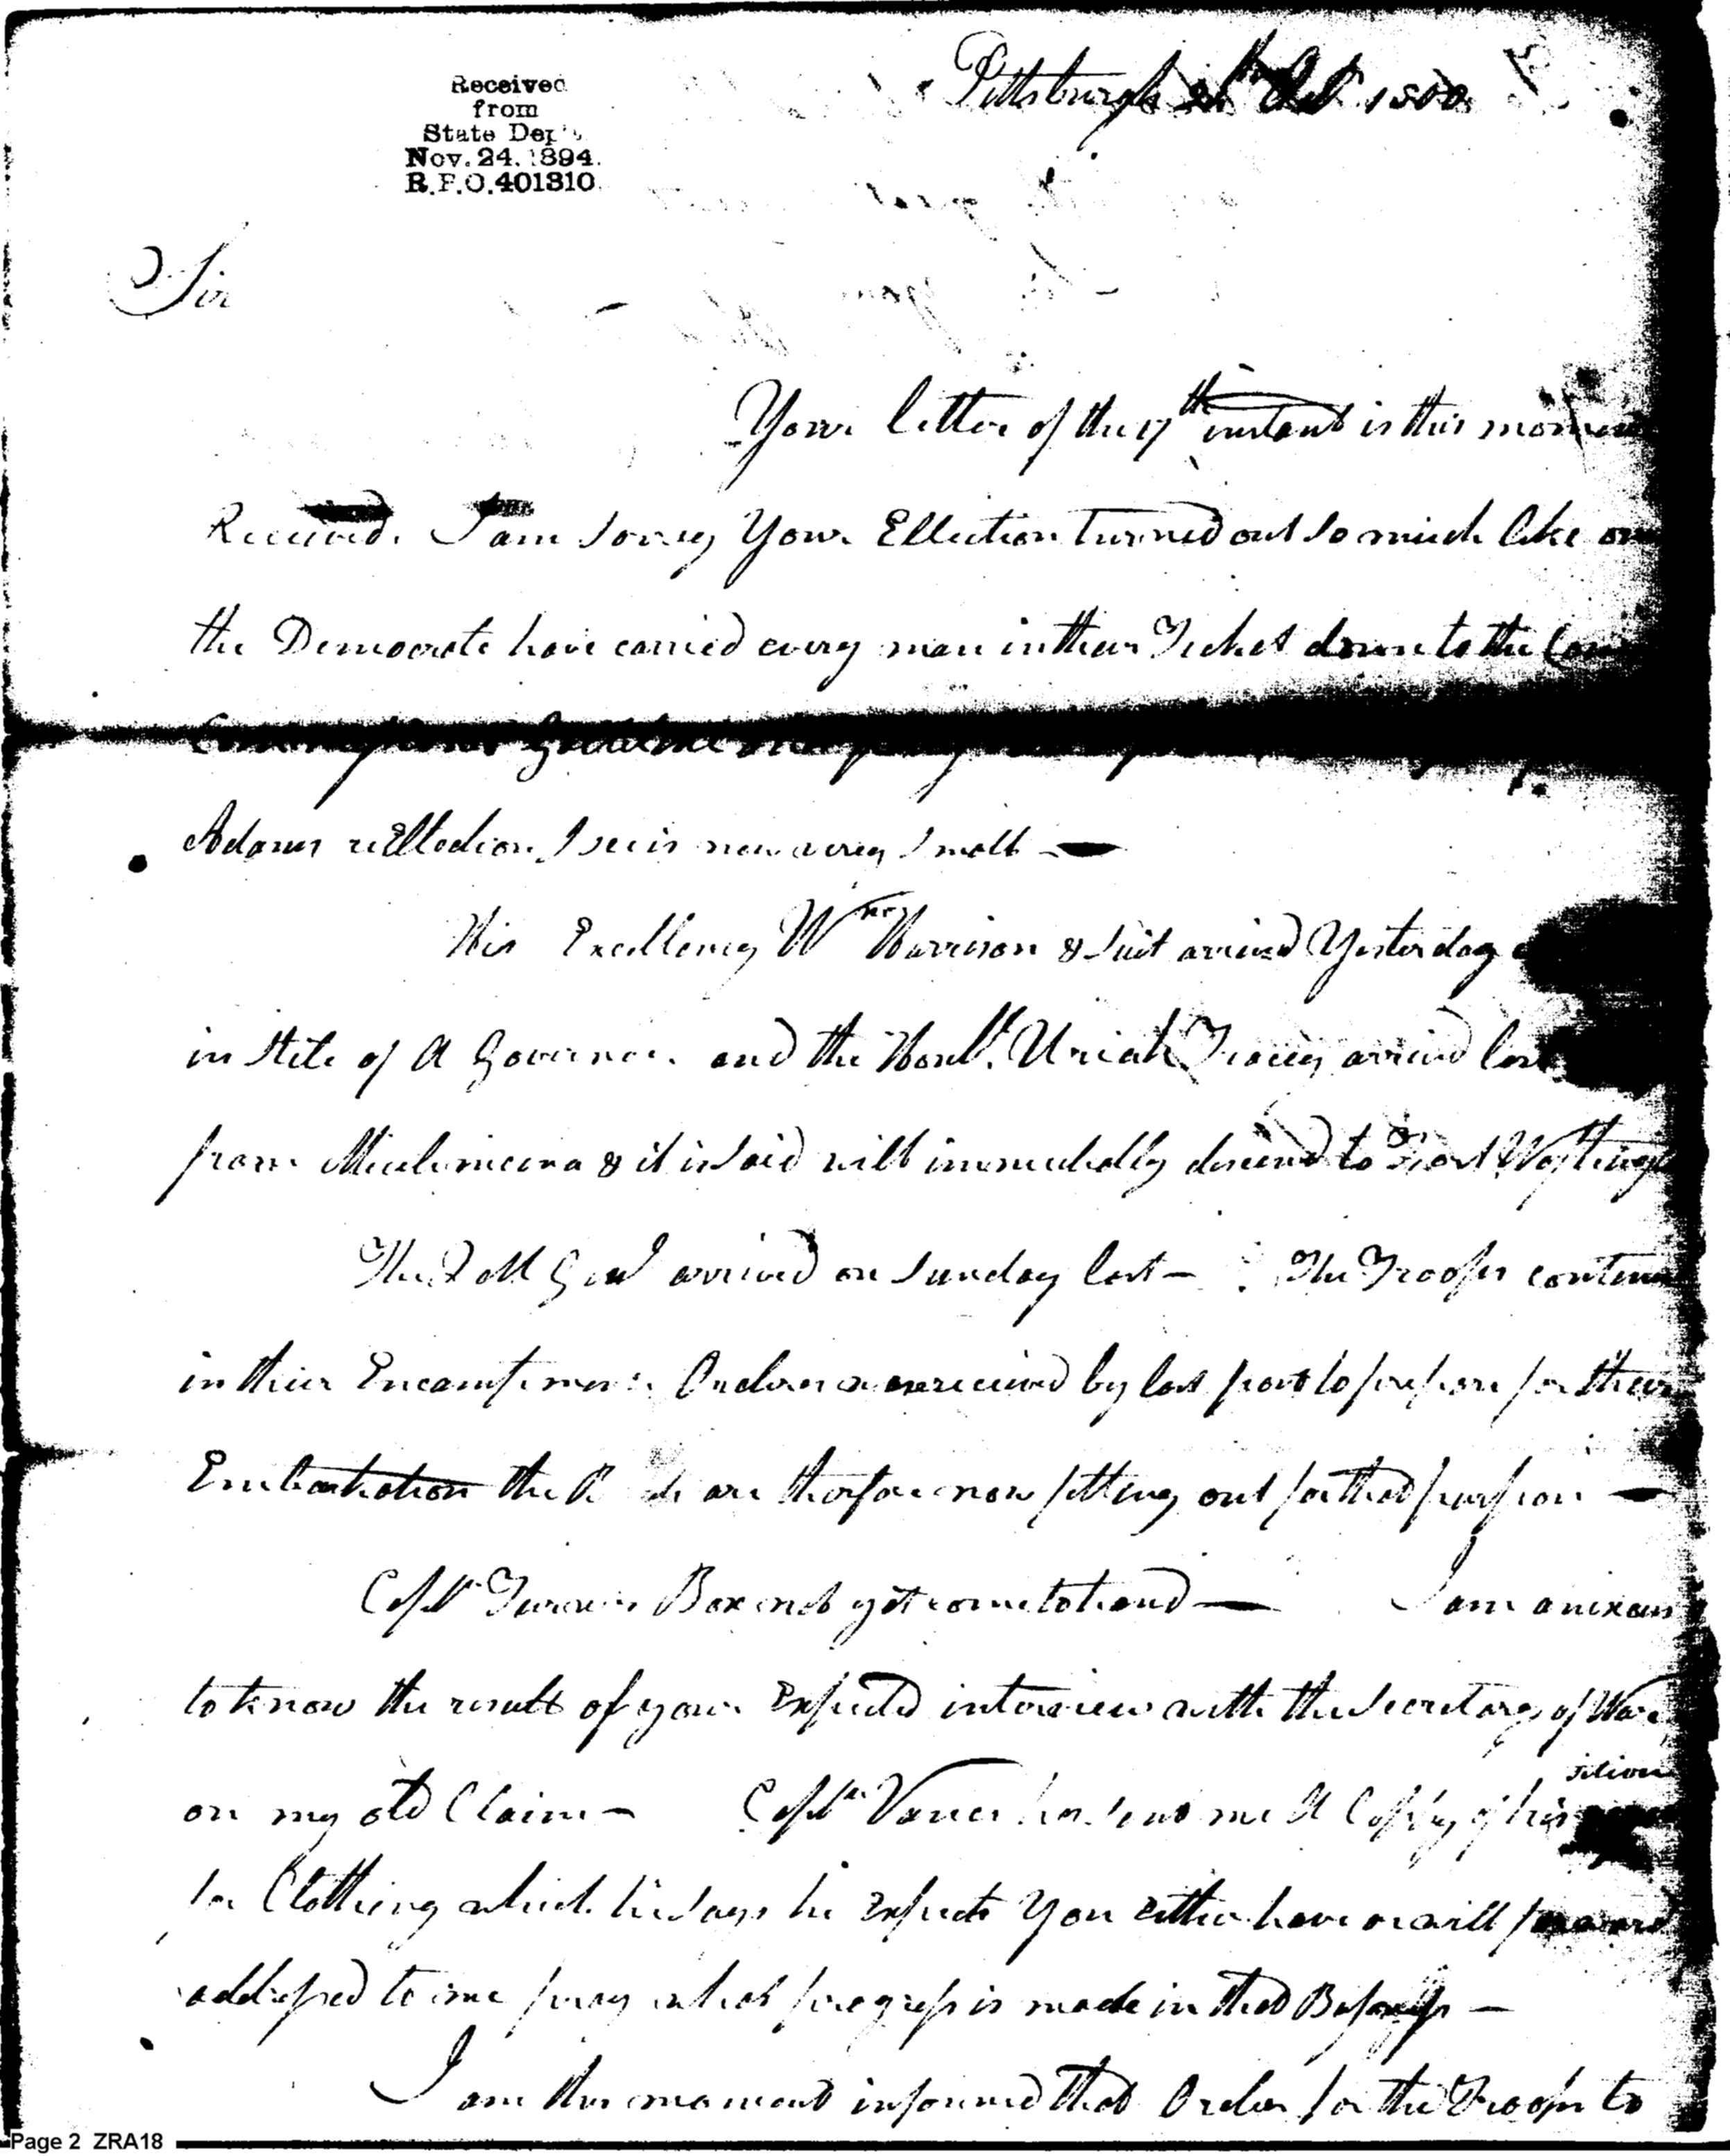 Pittsburgh Oct 1800
Received
from
State Dep't
Nov. 24. 1894.
R.P.O. 401310.
Sir
Your letter of the 17th instant is this moment
Received. I am sorrey Your Ellection turned out so much like our
the Democrats have carried every man in their Ticket down to the
Adams reEllection I see is now a very small —
His Excellency Wm Harrison & suit arrived Yesterday
in stile of A Governor. and the Honbl. Uriah Tracey arrived last
from Michimicina & it is said will immediatelly descend to Fort
The Q M Genl arrived on Sunday last — The Troops continue
in their Encampment. Orders are received by last post to prepare for their
Embarkation the are therfore now fitting out for that purpose —
Captn Turners Box not yet come to hand — I am anixous
to know the result of your Expected interview with the Secretary of War
on my old Claim — Captn Vance has sent me A Copy of his
sition
for Clothing which he says he Expects You either have or will forward
addressed to me pray what progress is made in that —
I am this moment informed that Orders for the Troops to
Page 2 ZRA18